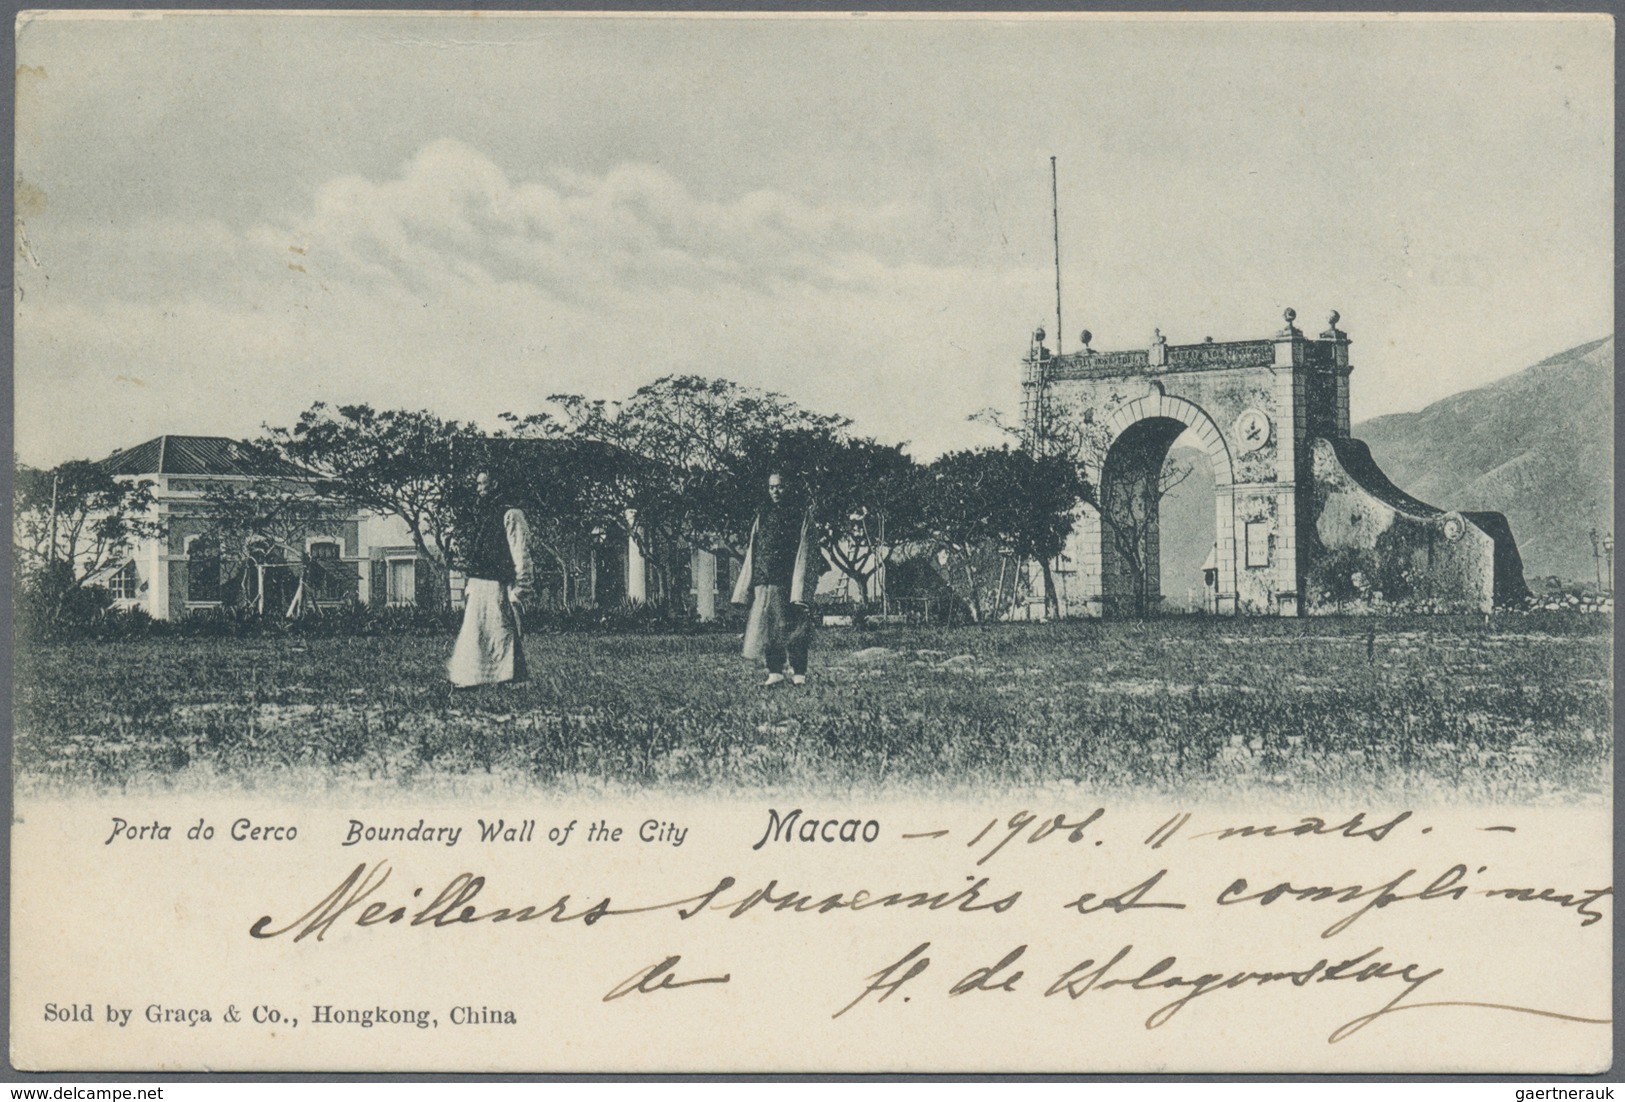 Porta do Cerco Boundary Wall of the City Macao — 1906. 11 mars. —
Meilleurs souvenirs et compliments
de H. de
Sold by Graça & Co., Hongkong, China
www.delcampe.net
gaertnerauk